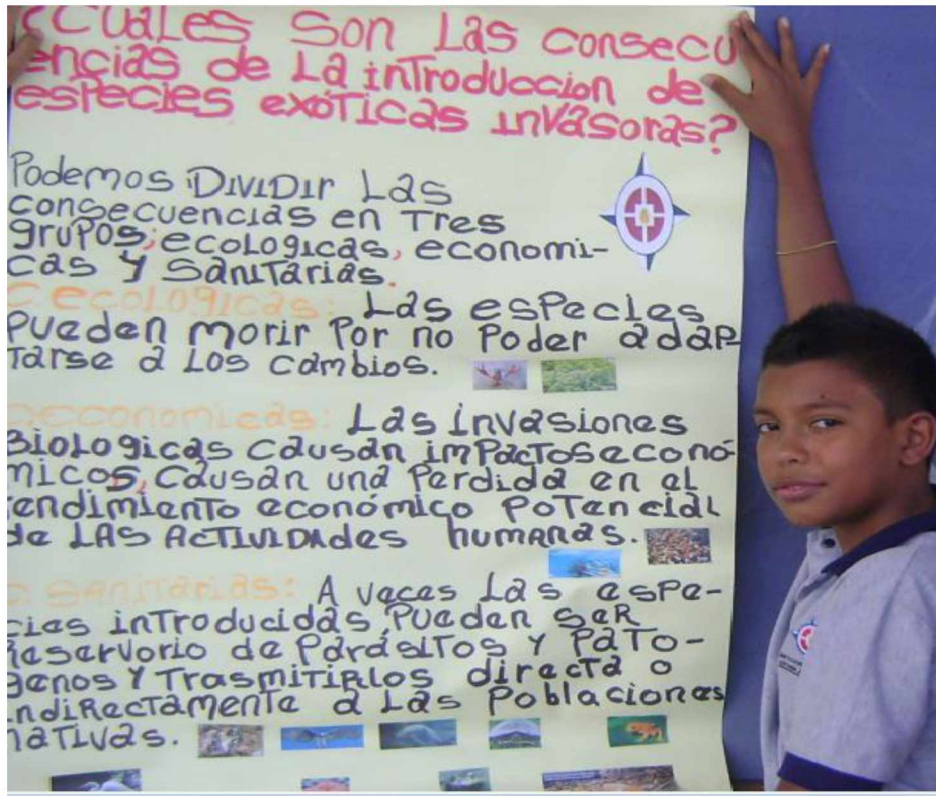 ¿CUALES SON LAS CONSECU
ENCIAS de LA inTroduccion de
esPecies exóTicas inVasoras?
Podemos DIVIDIr Las
consecuencias en Tres
grupos; ecologicas, economi-
cas y saniTarias.
C ecologicas: Las esPecies
Pueden morir Por no Poder adaP
Tarse a Los cambios.
C economicas: Las invasiones
BioLogicas causan imPacTos econó
micos, causan una Perdida en el
rendimienTo económico PoTencial
de LAS AcTIVIDAdes humAnas.
C saniTarias: A veces Las esPe-
cies inTroducidas, Pueden ser
Reservorio de ParásiTos y PaTo-
genos y TrasmiTiRlos direcTa o
indiRecTamenTe a Las Poblaciones
naTivas.